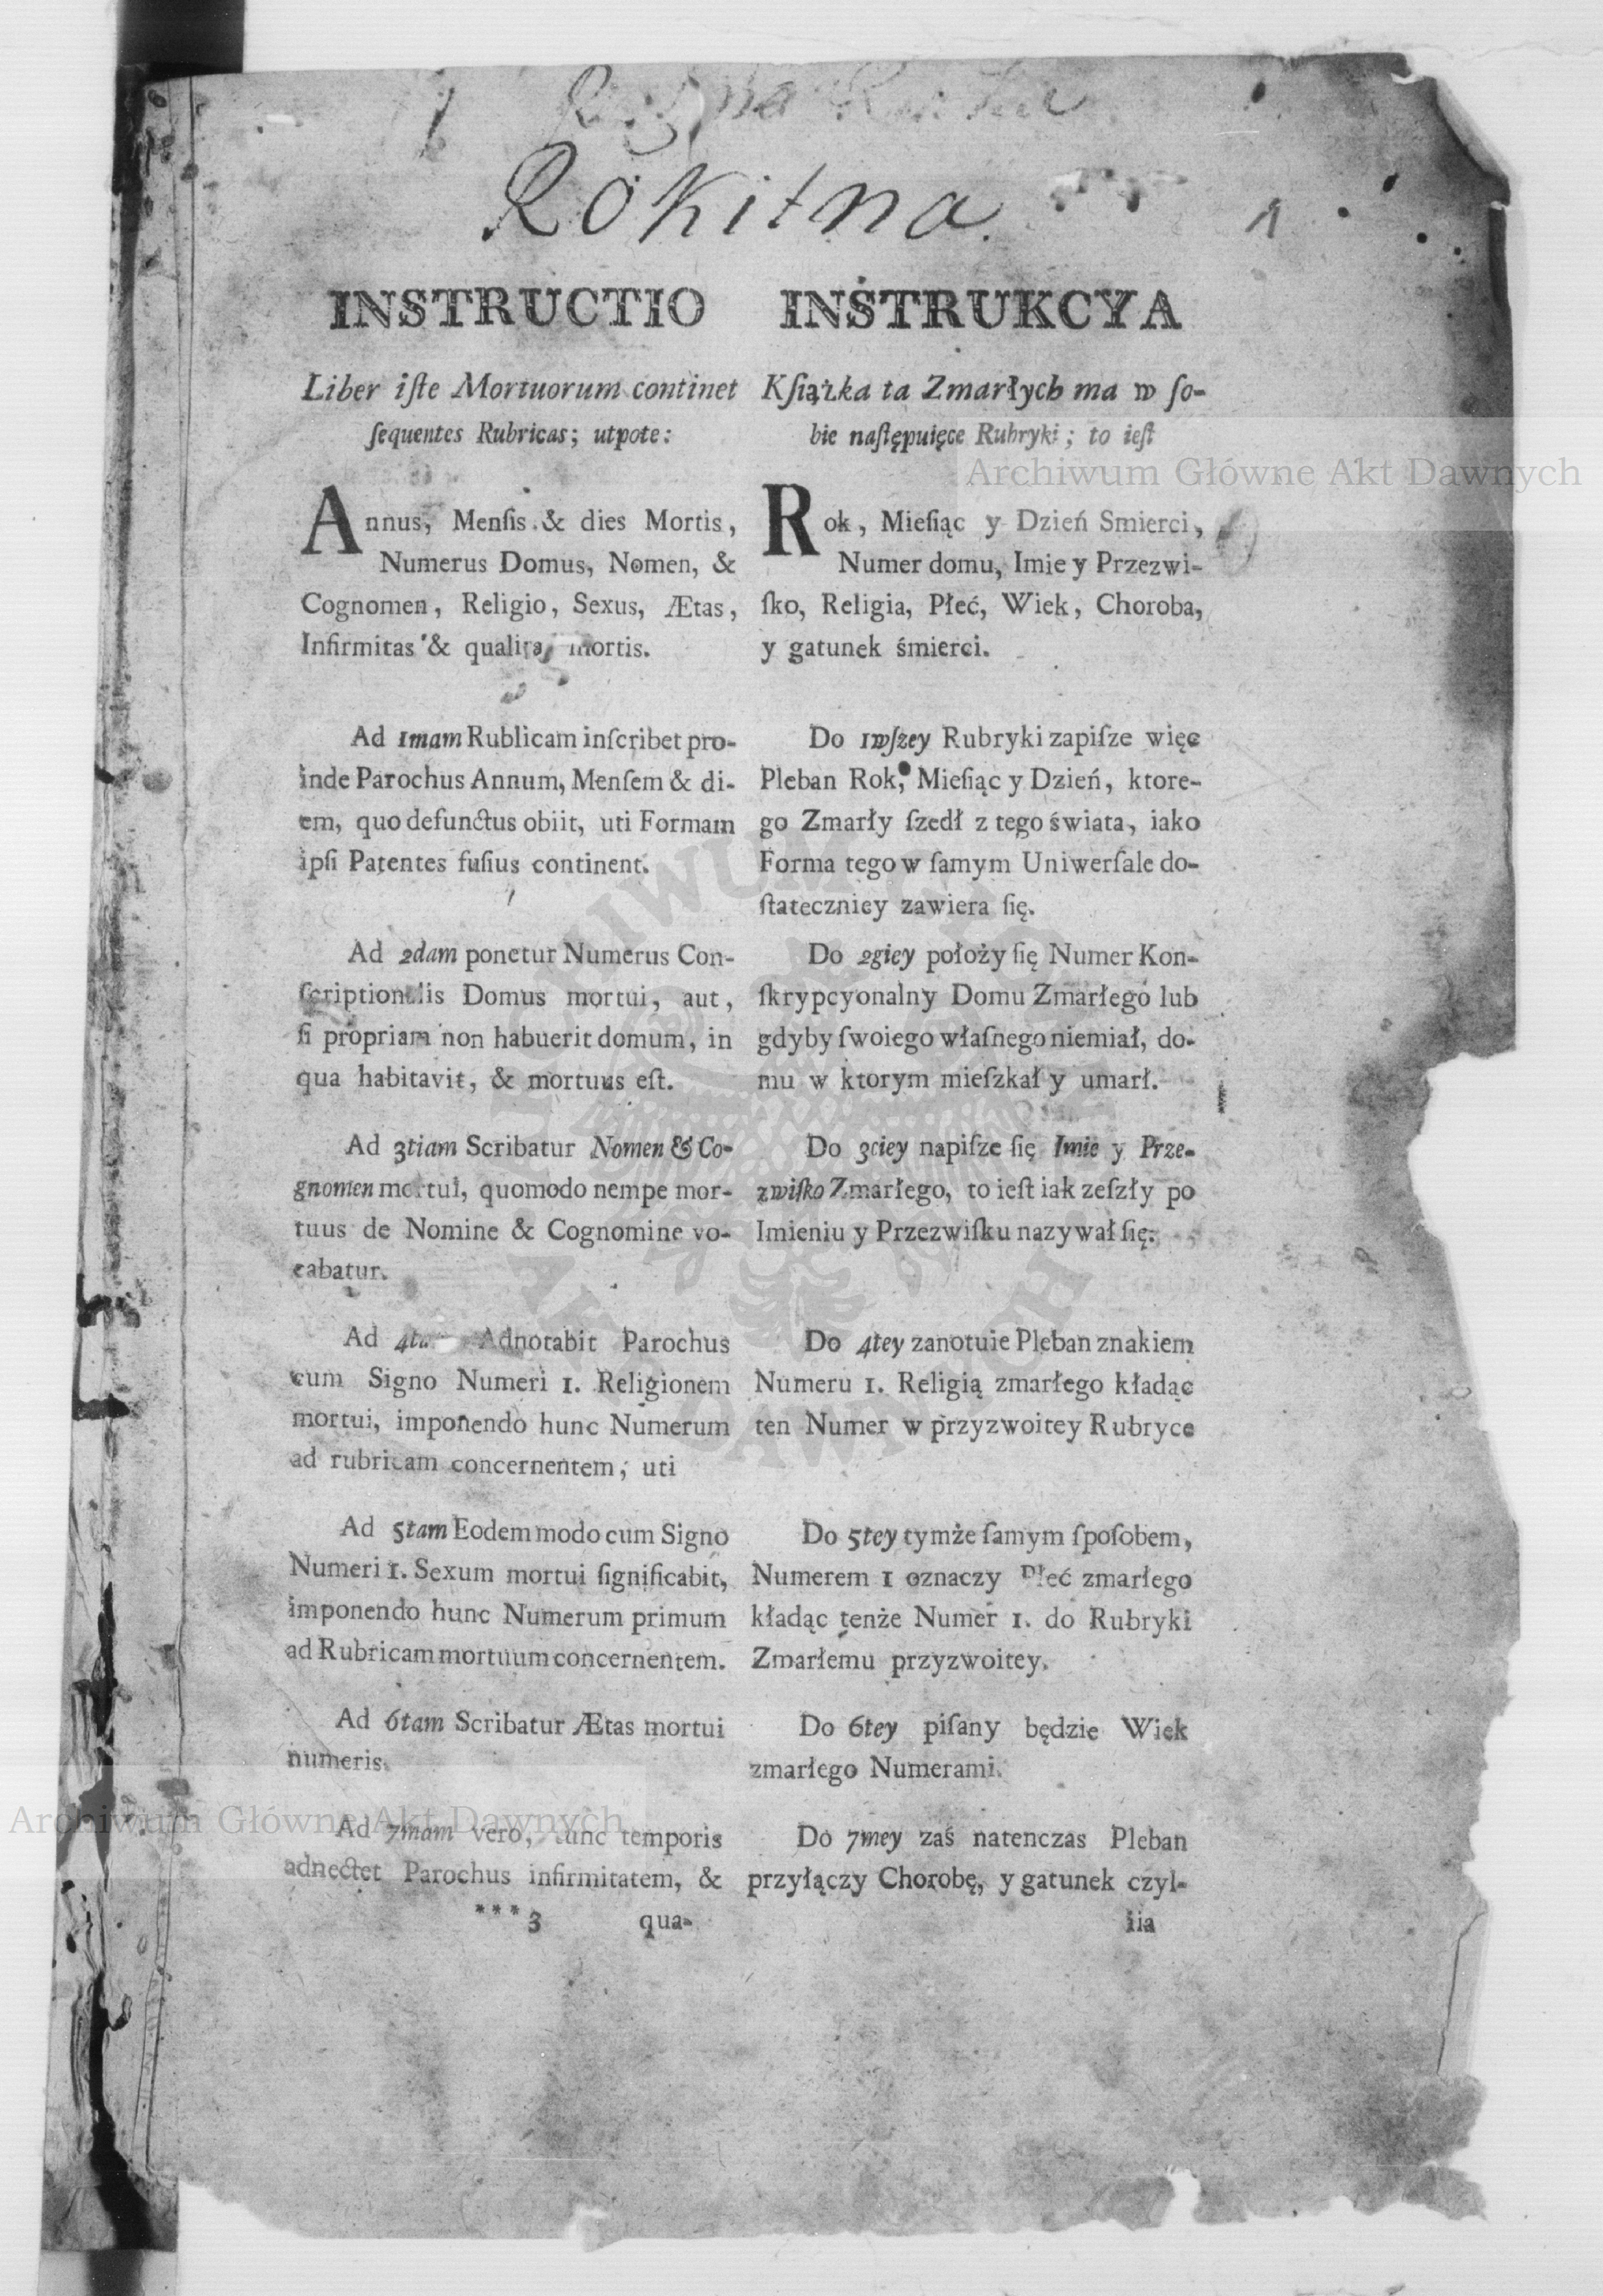 Rokitna
1
INSTRUCTIO
Liber iſte Mortuorum continet
ſequentes Rubricas; utpote:
Annus, Menſis & dies Mortis,
Numerus Domus, Nomen, &
Cognomen, Religio, Sexus, Ætas,
Infirmitas & qualitas mortis.
Ad 1mam Rublicam inſcribet pro-
inde Parochus Annum, Menſem & di-
em, quo defunctus obiit, uti Formam
ipſi Patentes fuſius continent.
Ad 2dam ponetur Numerus Con-
ſcriptionalis Domus mortui, aut,
ſi propriam non habuerit domum, in
qua habitavit, & mortuus eſt.
Ad 3tiam Scribatur Nomen & Co-
gnomen mortui, quomodo nempe mor-
tuus de Nomine & Cognomine vo-
cabatur.
Ad Adnotabit Parochus
cum Signo Numeri 1. Religionem
mortui, imponendo hunc Numerum
ad rubricam concernentem, uti
Ad 5tam Eodem modo cum Signo
Numeri 1. Sexum mortui ſignificabit,
imponendo hunc Numerum primum
ad Rubricam mortuum concernentem.
Ad 6tam Scribatur Ætas mortui
numeris.
Ad 7mam vero, tunc temporis
adnectet Parochus infirmitatem, &
***3 qua-
INSTRUKCYA
Kſiążka ta Zmarłych ma w ſo-
bie naſtępuięce Rubryki; to ieſt
Rok, Mieſiąc y Dzień Smierci,
Numer domu, Imie y Przezwi-
ſko, Religia, Płeć, Wiek, Choroba,
y gatunek śmierci.
Do 1wſzey Rubryki zapiſze więc
Pleban Rok, Mieſiąc y Dzień, ktore-
go Zmarły ſzedł z tego świata, iako
Forma tego w ſamym Uniwerſale do-
ſtateczniey zawiera ſię.
Do 2giey położy ſię Numer Kon-
ſkrypcyonalny Domu Zmarłego lub
gdyby ſwoiego właſnego niemiał, do-
mu w ktorym mieſzkał y umarł.
Do 3ciey napiſze ſię Imie y Prze-
zwiſko Zmarłego, to ieſt iak zeſzły po
Imieniu y Przezwiſku nazywał ſię.
Do 4tey zanotuie Pleban znakiem
Numeru 1. Religią zmarłego kładąc
ten Numer w przyzwoitey Rubryce
Do 5tey tymże ſamym ſpoſobem,
Numerem 1 oznaczy Płeć zmarłego
kładąc tenże Numer 1. do Rubryki
Zmarłemu przyzwoitey.
Do 6tey piſany będzie Wiek
zmarłego Numerami.
Do 7mey zaś natenczas Pleban
przyłączy Chorobę, y gatunek czyl-
iia
Archiwum Główne Akt Dawnych
Archiwum Główne Akt Dawnych